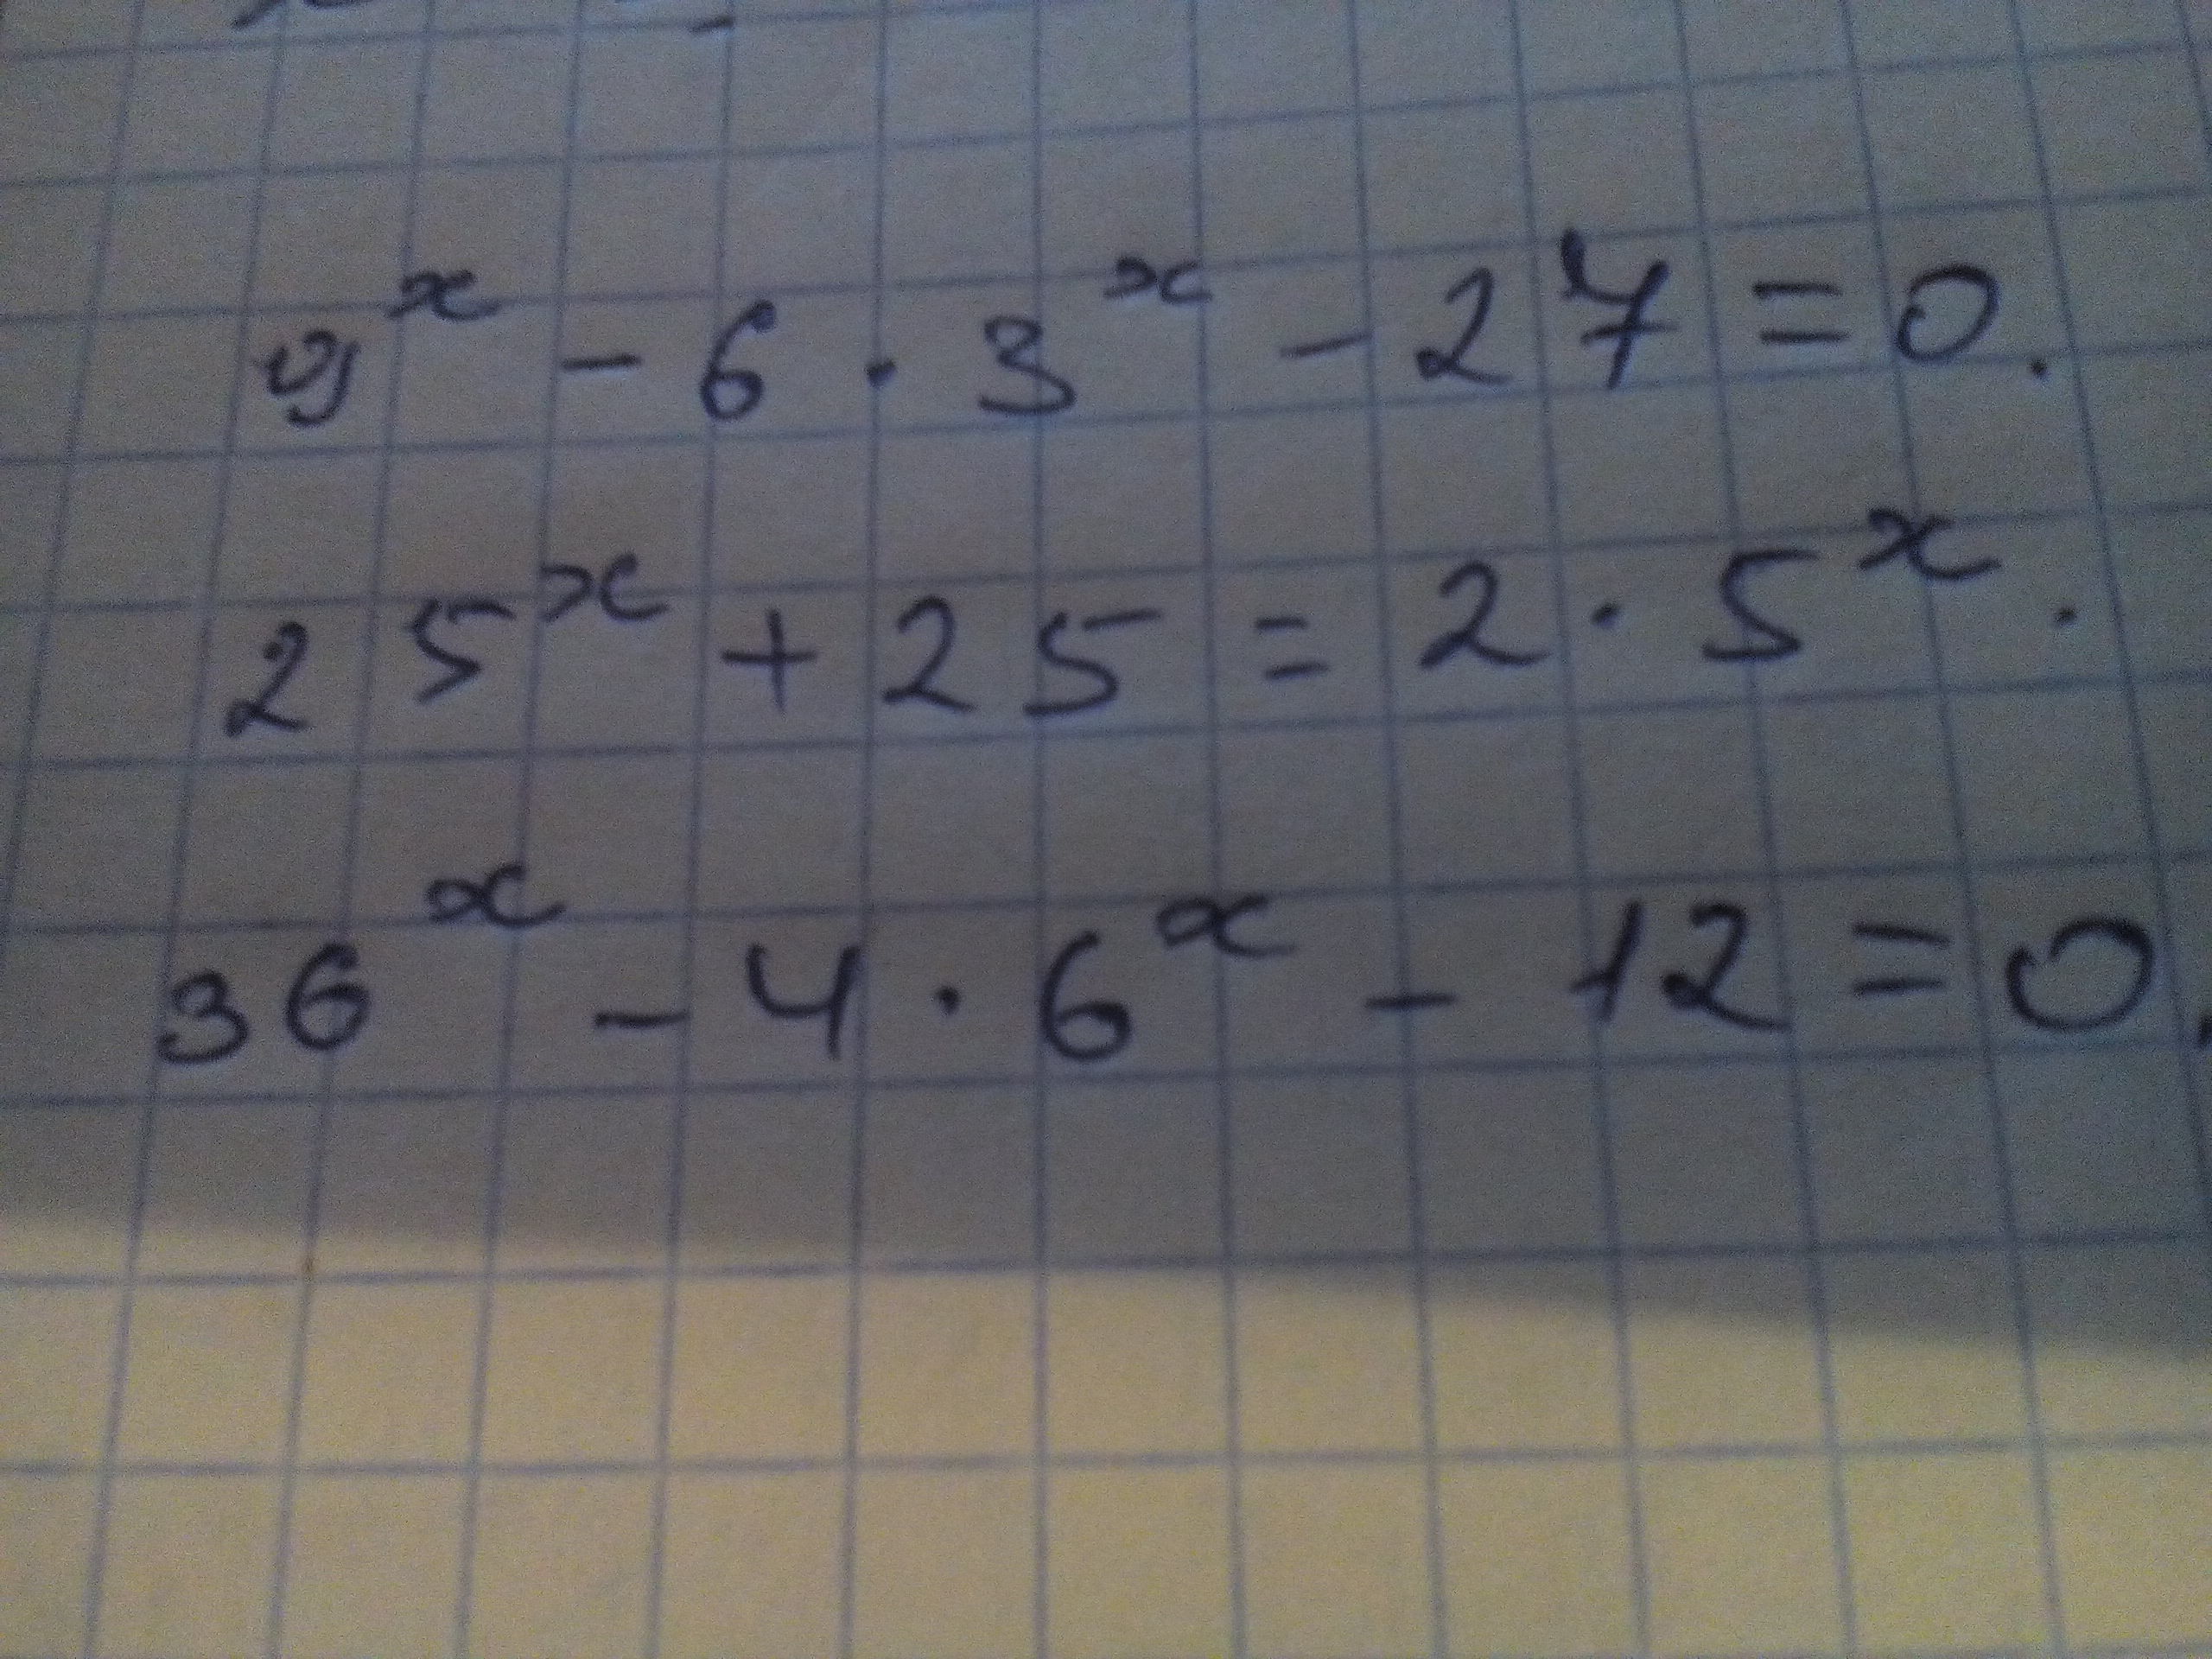 9^x - 6 · 3^x - 27 = 0.
25^x + 25 = 2 · 5^x.
36^x - 4 · 6^x - 12 = 0.